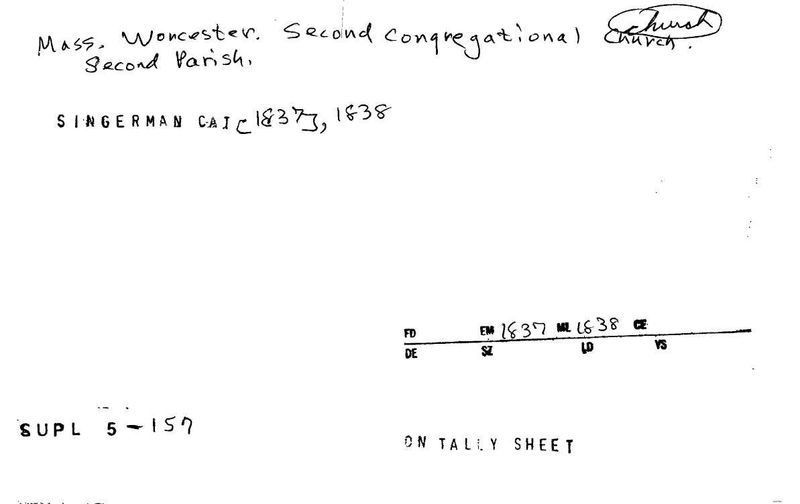 Mass. Worcester. Second Congregational Church Church.
Second Parish.
SINGERMAN CAT [1837], 1838
FD EM 1837 ML 1838 CE
DE SZ LD VS
SUPL 5-157
ON TALLY SHEET